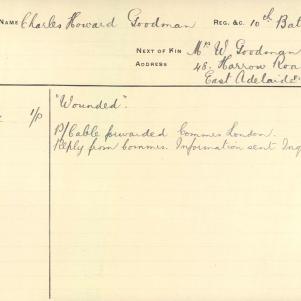 NAME Charles Howard Goodman REG. &C. 10th Bat
NEXT OF KIN Mrs W Goodman
ADDRESS 48 Harrow Roa
East Adelaide
1/P "Wounded".
P/Cable forwarded Commrs London.
Reply from Commrs. Information sent Inq